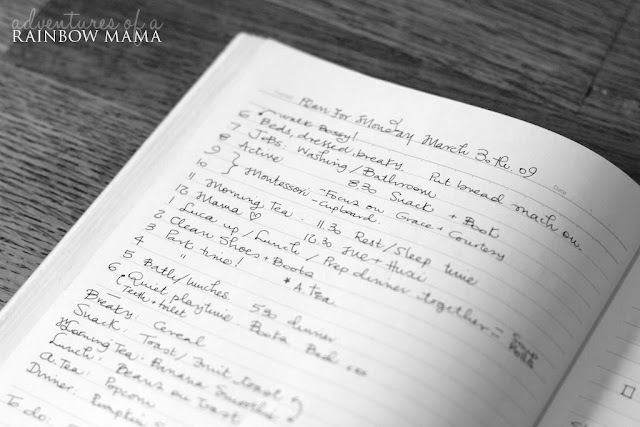 adventures of a
RAINBOW MAMA
Plan For Monday March 30th. 09
6 walk Bossy!
7 Beds, dressed, breaky. Put bread mach on.
8 Jobs: Washing / Bathroom
9 Active 830 Snack + Book
10 } Montessori - Focus on Grace + Courtesy
- Cupboard.
11 Morning Tea. 11.30 Rest/Sleep time
12 Mama ♡ 12.30
1 Luca up / Lunch / Prep dinner together =
2 Clean Shoes + Boots
3 Park time! * A. Tea
4 "
5 Bath / lunches. 530 dinner
6 Quiet playtime Books Bed
Teeth + toilet
Breaky: Cereal
Snack: Toast / Fruit toast
Morning Tea: Banana Smoothie
Lunch: Beans on Toast
A Tea: Popcorn
Dinner: Pumpkin
To do: